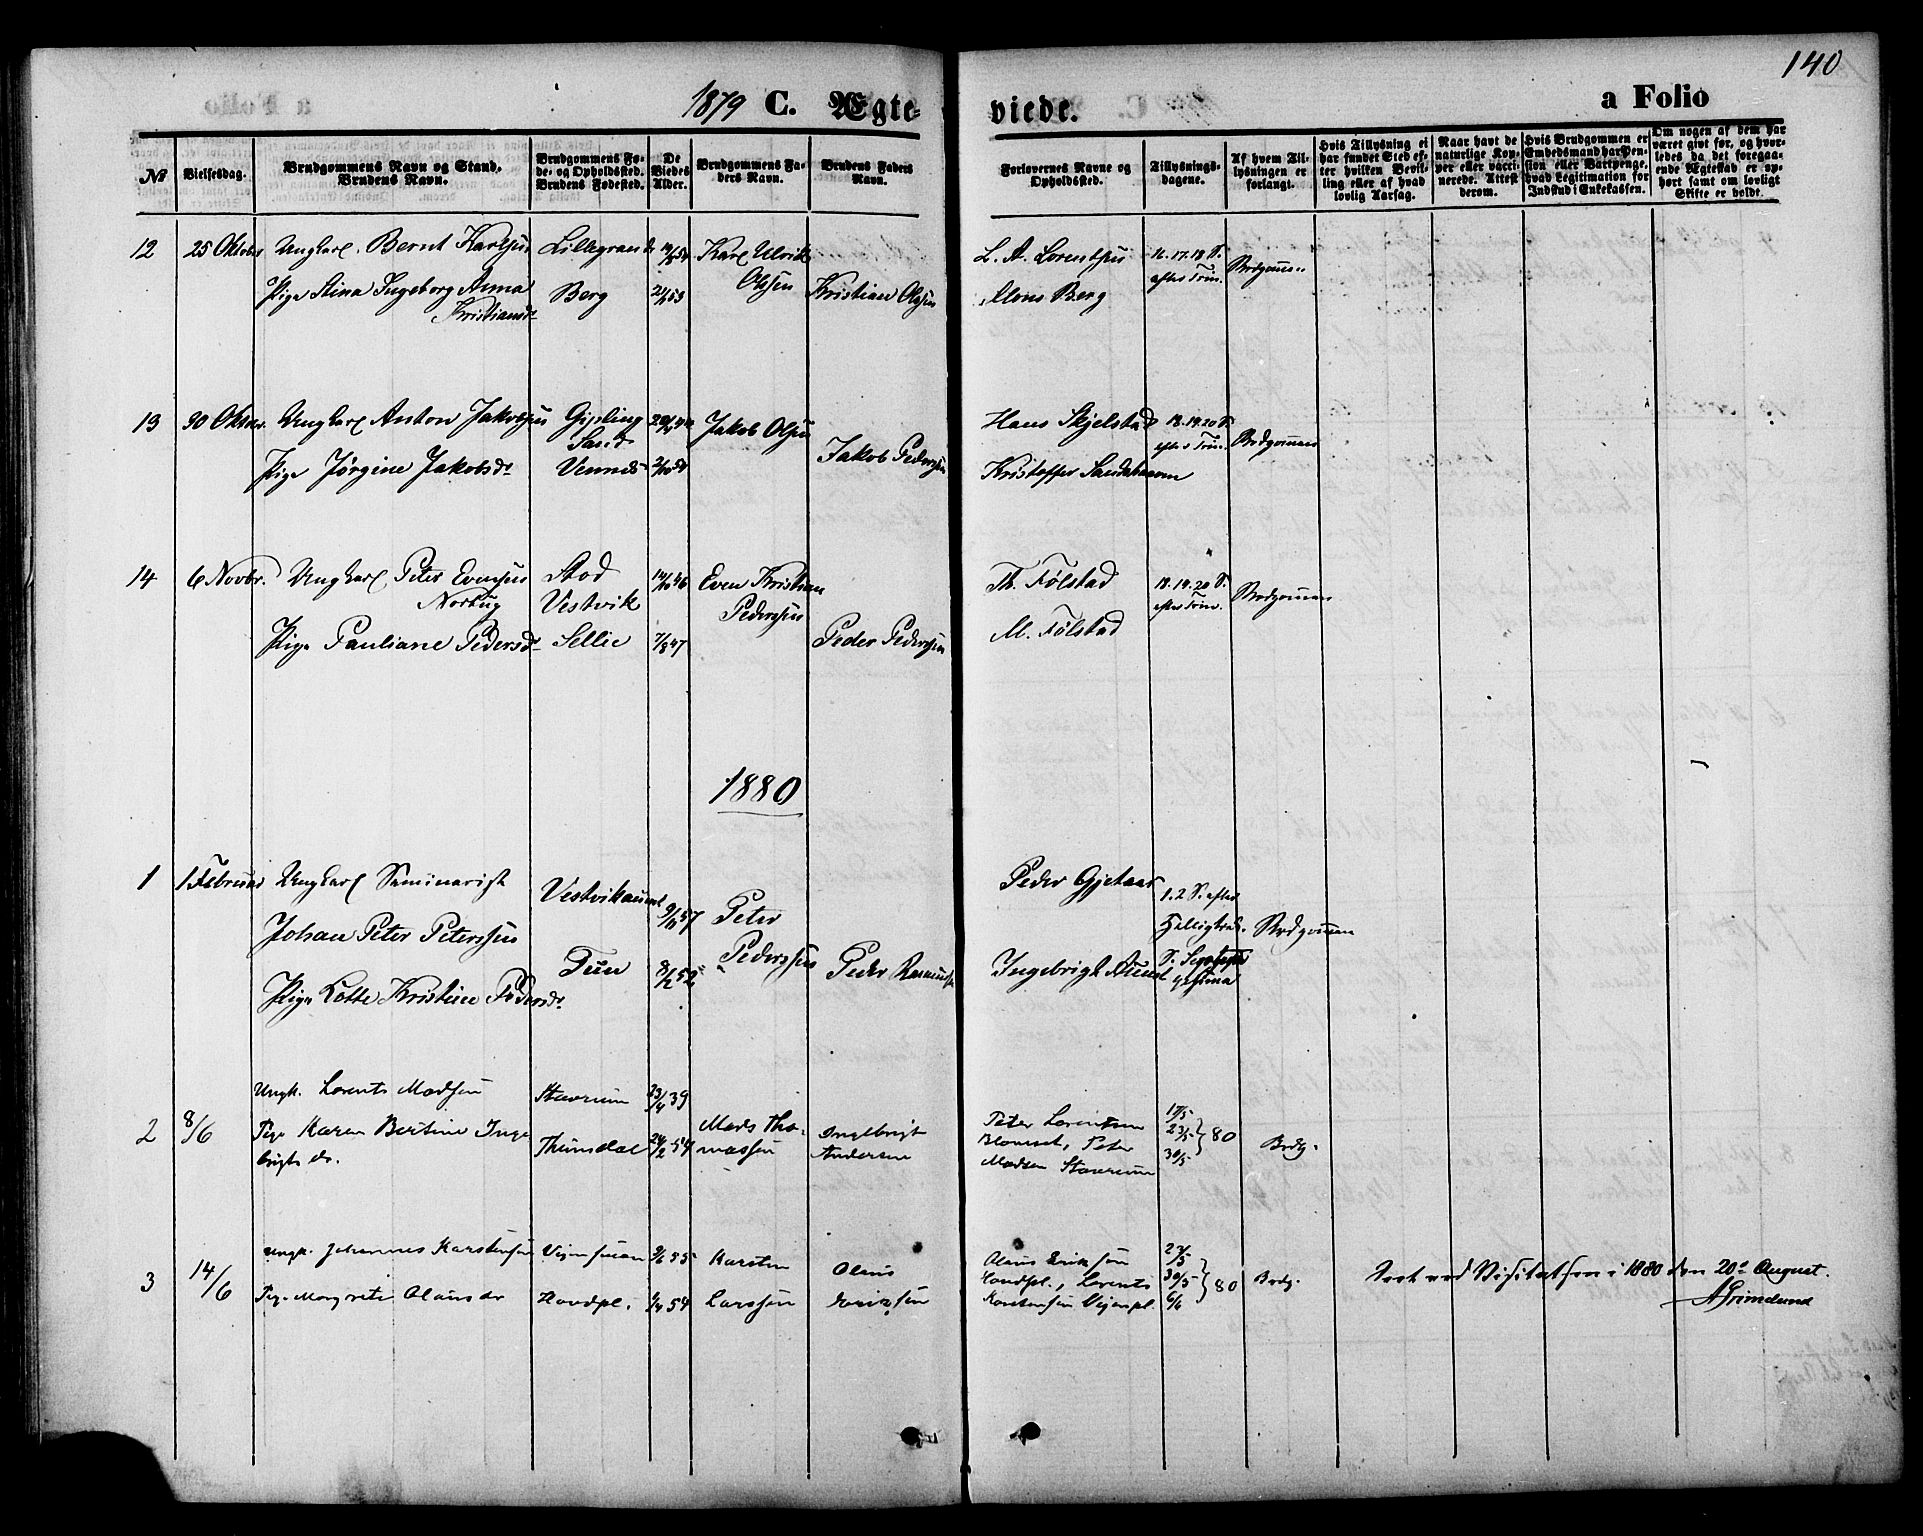 140
1879 C. Ægte-
viede.
a Folio
No
Vielsesdag.
Brudgommens Navn og Stand.
Brudens Navn.
Brudgommens Fø-
de- og Opholdssted.
Brudens Fødested.
De
Viedes
Alder.
Brudgommens Fa-
ders Navn.
Brudens Faders
Navn.
Forlovernes Navne og
Opholdssted.
Tillysnings-
dagene.
Af hvem Til-
lysningen er
forlangt.
Hvis Tillysning ei
har fundet Sted ef-
ter hvilken Bevil-
ling eller af hvad
lovlig Aarsag.
Naar havt de
naturlige Kop-
per eller vacci-
nerede. Attest
derom.
Hvis Brudgommen er
Embedsmand har Pen-
sion eller Vartpenge,
hvad Legitimation for
Indskud i Enkekassen.
Om nogen af dem har
været givt for, og hvor-
ledes da det foregaa-
ende Ægteskab er op-
hørt samt om lovligt
Skifte er holdt.
12
25 Oktober
Ungkarl. Bernt Karlsen
Pige Stina Ingeborg Anna
Kristiansdr
Lillegrand
Berg
Karl Ulrik
Olssen
Kristian Olssen
L. A. Lorentsen
Mons Berg
16. 17. 18 S.
efter Trin.
Brdgomen
13
30 Oktober.
Ungkarl Anton Jakobsen
Pige Jørgine Jakobsdr
Gipling
Sand
Vennes
Jakob Olsen
Jakob Pederssen
Hans Skjelstad
Kristoffer
18. 19. 20 S.
efter Trin.
Brdgomen
14
6 Novbr.
Ungkarl Peter Evensen
Norbug
Pige Pauliane Pedersdr
Stod
Vestvik
Sellie
7/8 47
Even Kristian
Pederssen
Peder Pederssen
Th. Følstad
M. Følstad
18. 19. 20 S.
efter Trin.
Brdgomen
1880
1
1 Februar
Ungkarl Seminarist
Johan Peter Peterssen
Pige Lotte Kristine Pedersdr
Tun
8/2 52
Peter
Pederssen
Peder Rasmussen
Peder Gjetaas
Ingebrigt
1. 2 S. efter
Helligtrek.
Brdgomen
2
8/6
Ungk. Lorents Madsen
Pige Karen Bertine Inge
brigts dr.
Staverum
Thunsdal
23/4 39
24/2 54
Mads Tho-
massen
Ingebrigt
Andersen
Peter Lorentsen
Peter
Madsen Staverum
17/5
23/5
30/5
80
Brdg.
3
14/6
Ungk. Johannes Karstensen
Pige Margrete Olausdr
Hovdpl.
Karsten
Larssen
Olaus
Eriksen
Olaus Eriksen
Hovdpl., Lorents
Karstensen Vejempl.
23/5
30/5
6/6
80
Brdg.
Seet ved Visitatsen i 1880 den 20de August.
A Grimelund